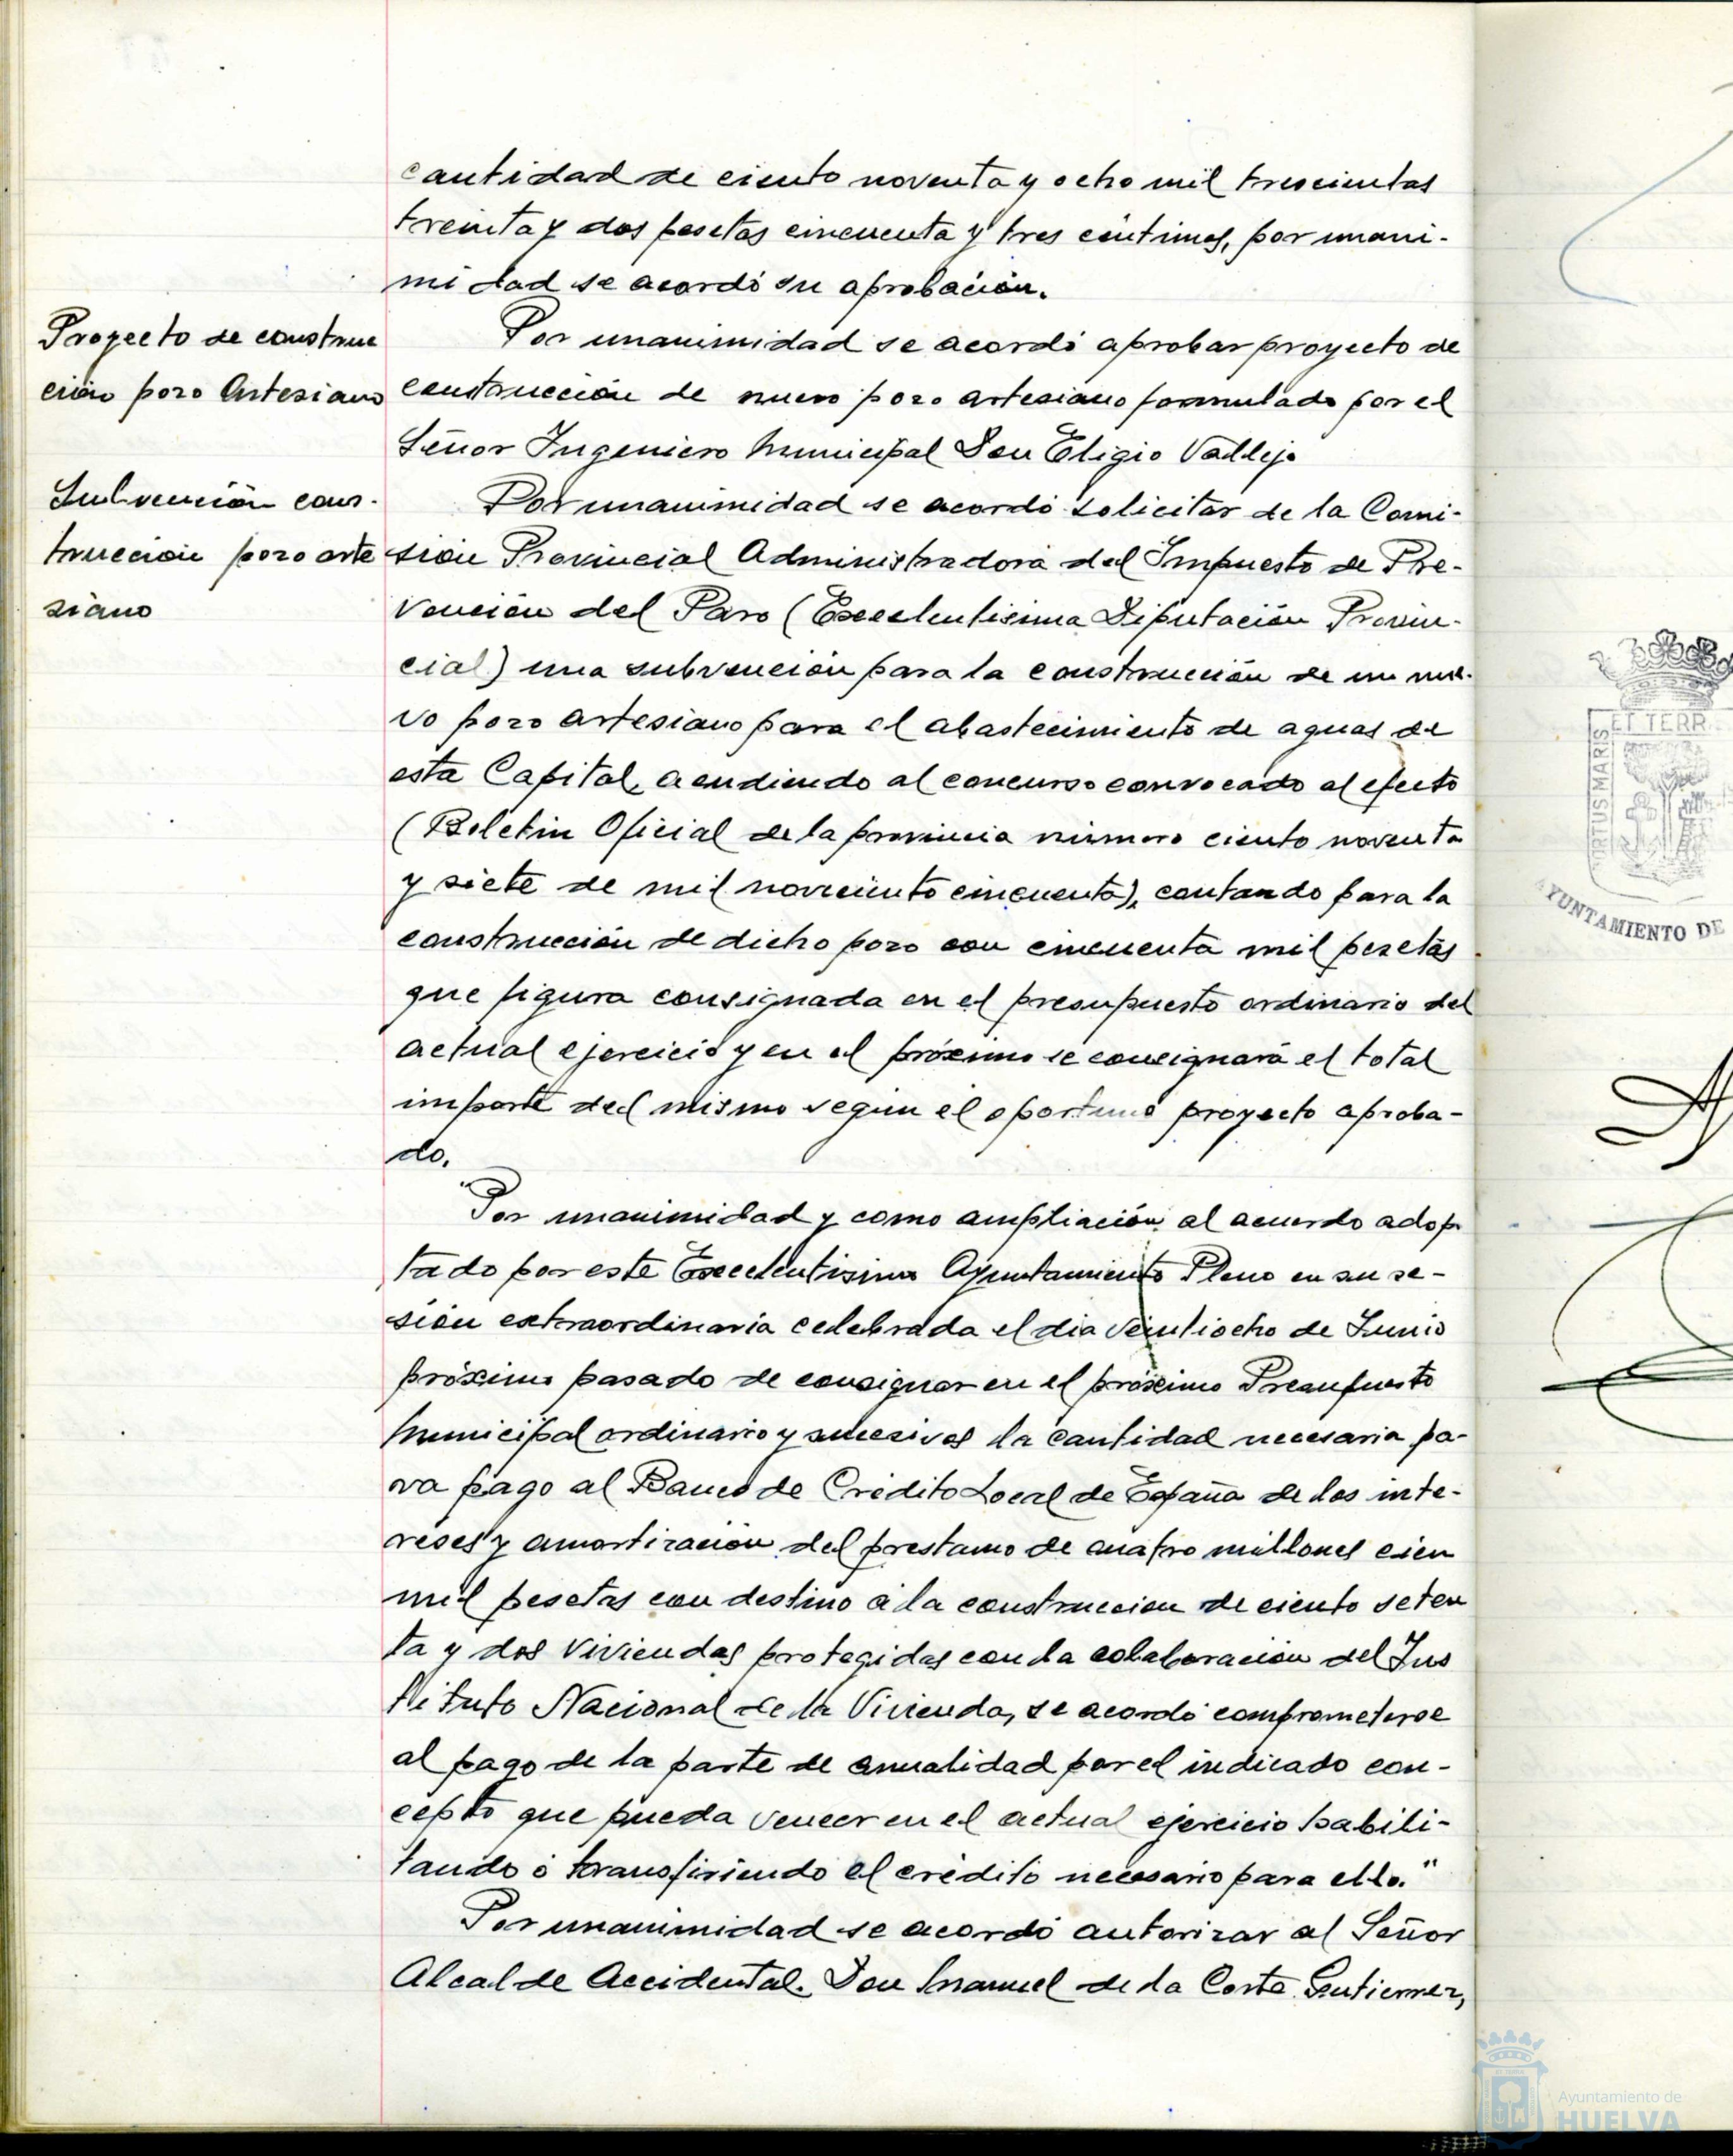 cantidad de ciento noventa y ocho mil trescientas
treinta y dos pesetas cincuenta y tres céntimos, por unani-
midad se acordó su aprobación.
Proyecto de construc
ción pozo Artesiano
Por unanimidad se acordó aprobar proyecto de
construcción de nuevo pozo artesiano formulado por el
Señor Ingeniero Municipal Don Eligio Vallejo
Subvención cons-
trucción pozo arte
siano
Por unanimidad se acordó solicitar de la Comi-
sión Provincial Administradora del Impuesto de Pre-
vención del Paro (Excelentísima Diputación Provin-
cial) una subvención para la construcción de un nue-
vo pozo artesiano para el abastecimiento de aguas de
esta Capital, acudiendo al concurso convocado al efecto
(Boletín Oficial de la provincia número ciento noventa
y siete de mil novecientos cincuenta), contando para la
construcción de dicho pozo con cincuenta mil pesetas
que figura consignada en el presupuesto ordinario del
actual ejercicio y en el próximo se consignará el total
importe del mismo según el oportuno proyecto aproba-
do.
"Por unanimidad y como ampliación al acuerdo adop
tado por este Excelentísimo Ayuntamiento Pleno en su se-
sión extraordinaria celebrada el dia veintiocho de Junio
próximo pasado de consignar en el próximo Presupuesto
Municipal ordinario y sucesivos la cantidad necesaria pa-
ra pago al Banco de Crédito Local de España de los inte-
reses y amortización del prestamo de cuatro millones cien
mil pesetas con destino á la construccion de ciento seten
ta y dos viviendas protegidas con la colaboración del Ins
tituto Nacional de la Vivienda, se acordó comprometerse
al pago de la parte de anualidad por el indicado con-
cepto que pueda vencer en el actual ejercicio habili-
tando ó transfiriendo el crédito necesario para ello."
Por unanimidad se acordó autorizar al Señor
Alcalde Accidental. Don Manuel de la Corte Gutierrez,
ET TERR
MARIS
AYUNTAMIENTO DE
Ayuntamiento de
HUELVA